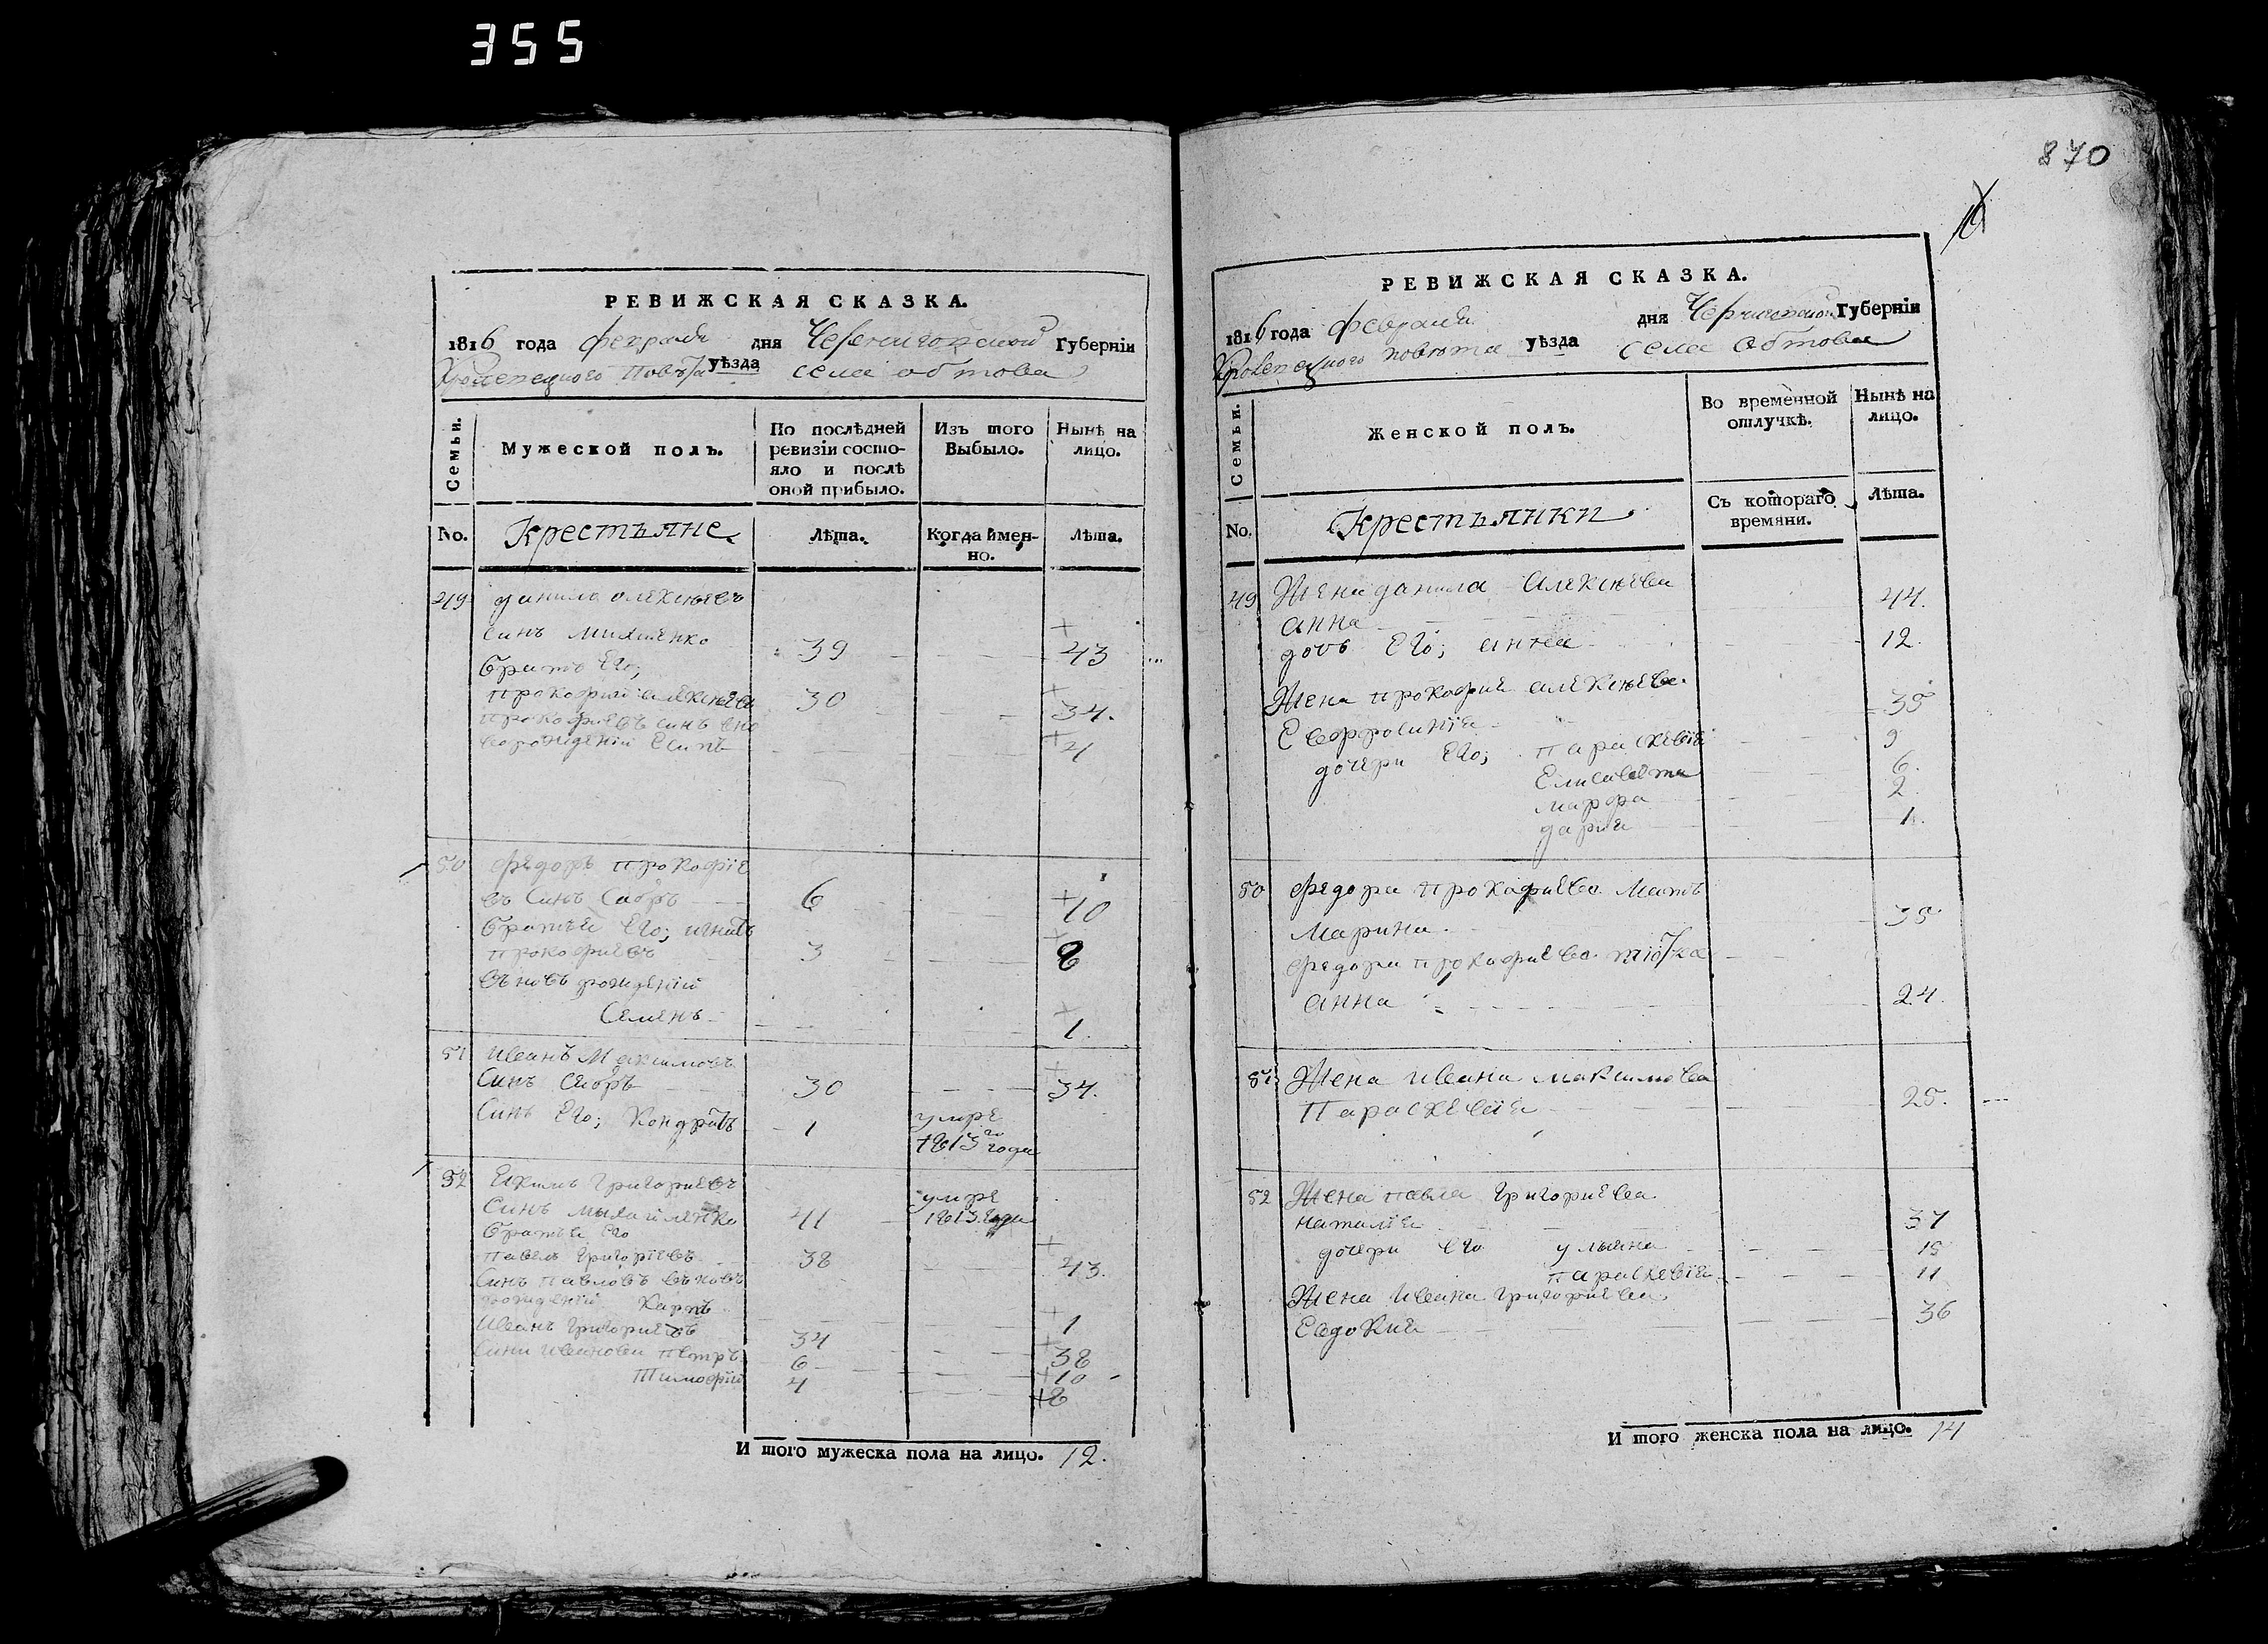 355
870
РЕВИЖСКАЯ СКАЗКА.
1816 года февраля дня Черниговской Губернїи
Кролевецкого повѣта уѣзда села обтова
Семьи.
Мужеской полъ.
По послѣдней ревизїи состояло и послѣ оной прибыло.
Изъ того Выбыло.
Нынѣ на лицо.
No. Крестъяне Лѣта. Когда имен-но. Лѣта.
49 данило олексѣевъ
синъ 39 43
братъ Его;
прокофий алексѣевъ 30 34.
прокофиевъ синъ вно
ворожденїй Есипъ 4
50 федоръ прокофїе
въ Синъ Сабръ 6 10
братъя Его; игнатъ
прокофиевъ 3 8
въновъ рожденїй
Семенъ 1.
51 иванъ Максимовъ
Синъ 30 34.
Синъ Его; Кондратъ 1 умре
1813го года
52 Екимъ григориевъ
Синъ 41 умре 1813 года
братья Его
павелъ григорїевъ 38 43.
Синъ павловъ въновъ
рожденїй Карпъ 1
Иванъ григориевъ 34 38
Сини ивановы петръ 6 10
Тимофїй 4 8
И того мужеска пола на лицо. 12.
РЕВИЖСКАЯ СКАЗКА.
1816 года февраля дня Губернїи
Кролевецкого повѣта уѣзда села обтова
Семьи.
Женской полъ.
Во временной отлучкѣ.
Нынѣ на лицо.
No. Крестъянки Съ котораго времяни. Лѣта.
49 Жена данила алексѣева
анна 44.
дочъ Его; анна 12.
Жена прокофия алексѣева
Евфросинїя 35
дочери Его; параскевїя 9
Елисавета 6.
марфа 2
дарїя 1.
50 федора прокофиева мать
Марина 35
федора прокофиева тіотка
анна 24.
51 Жена ивана максимова
Параскевїя 25.
52 Жена павла григориева
наталїя 37
дочери Его улияна 15
параскевїя 11
Жена ивана григориева
Евдокия 36
И того женска пола на лицо. 14